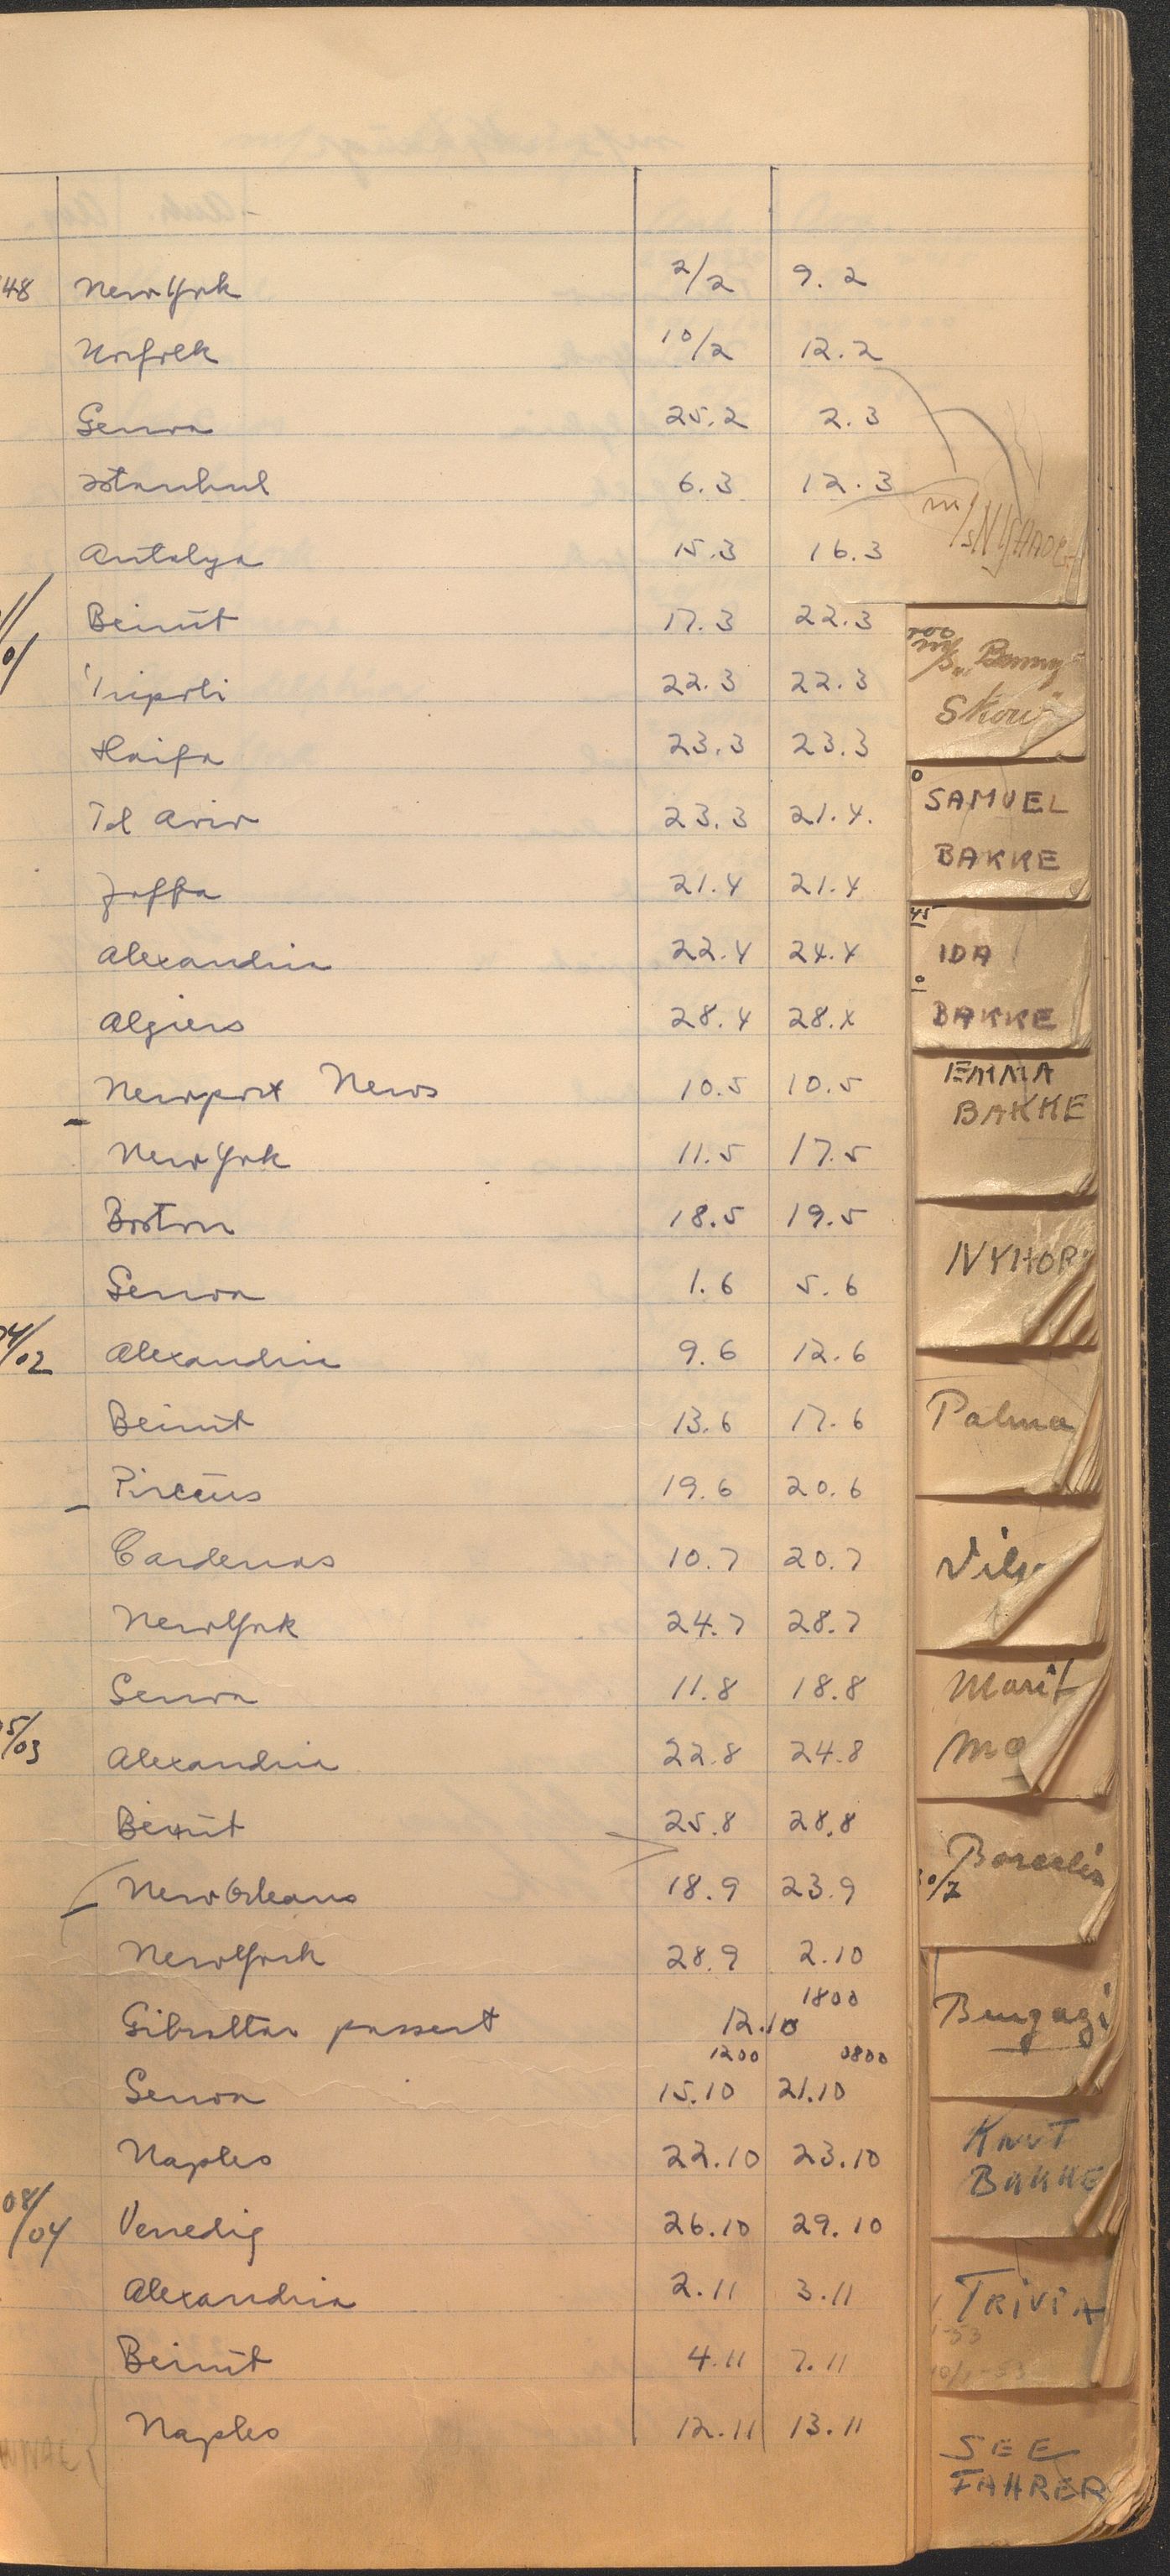 48 New York 2/2 9.2
Norfolk 10/2 12.2
Genoa 25.2 2.3
Istanbul 6.3 12.3
Antalya 15.3 16.3
Beirūt 17.3 22.3
Tripoli 22.3 22.3
Haifa 23.3 23.3
Tel Aviv 23.3 21.4.
Jaffa 21.4 21.4
Alexandria 22.4 24.4
Algiers 28.4 28.4
Newport News 10.5 10.5
New York 11.5 17.5
Boston 18.5 19.5
Genoa 1.6 5.6
04/02 Alexandria 9.6 12.6
Beirūt 13.6 17.6
Piräus 19.6 20.6
Cardenas 10.7 20.7
New York 24.7 28.7
Genoa 11.8 18.8
5/03 Alexandria 22.8 24.8
Beirūt 25.8 28.8
New Orleans 18.9 23.9
New York 28.9 2.10
1800
Gibraltar passert 12.10
1200 0800
Genoa 15.10 21.10
Naples 22.10 23.10
08/04 Venedig 26.10 29.10
Alexandria 2.11 3.11
Beirūt 4.11 7.11
Naples 12.11 13.11
m/s
m/s "Benny
Skou"
SAMUEL
BAKKE
45
IDA
BAKKE
EMMA
BAKKE
NYHOR
Palma
Vil
Marit
Mæ
30/7
Bengazi
KNUT
BAKKE
TRIVIA
SEE
FAHRER